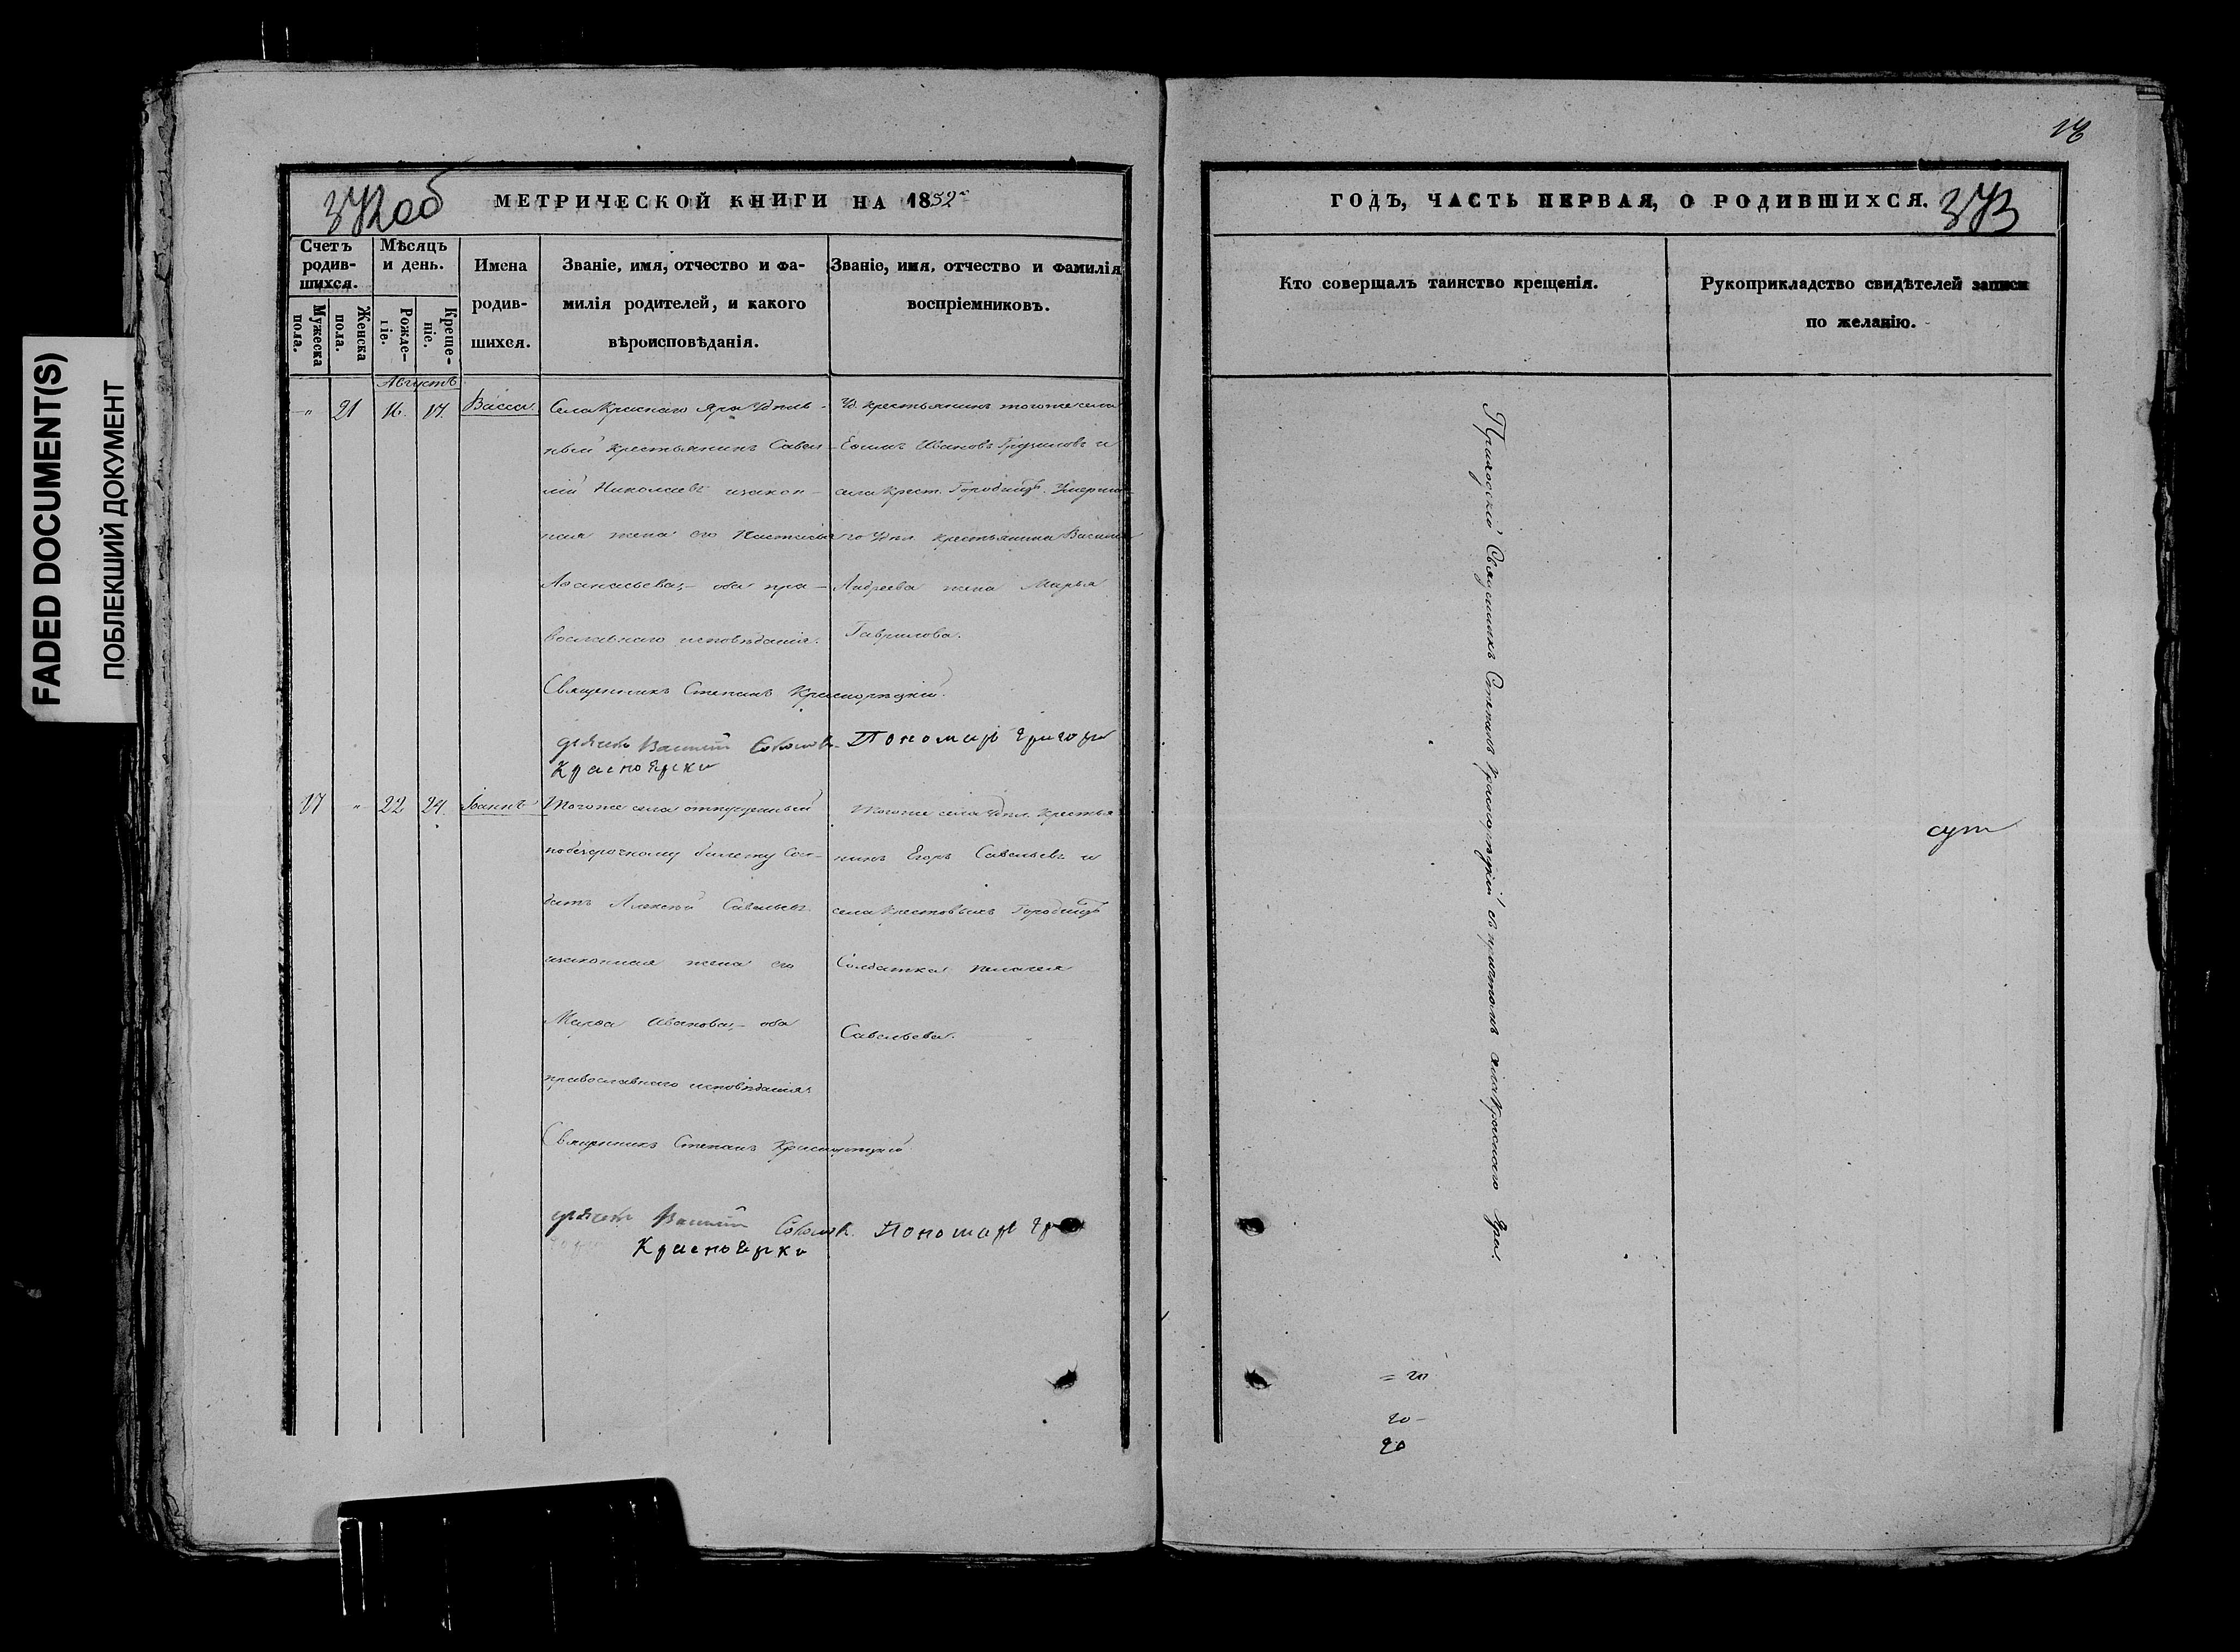 FADED DOCUMENT(S)
ПОБЛЕКШИЙ ДОКУМЕНТ
372об
МЕТРИЧЕСКОЙ КНИГИ НА 1852
Счетъ родившихся.
Мѣсяцъ и день.
Имена родившихся.
Званіе, имя, отчество и фамилія родителей, и какого вѣроисповѣданія.
Званіе, имя, отчество и фамилія воспріемниковъ.
Мужеска пола.
Женска пола.
Рожденіе.
Крещеніе.
Августъ
" 21 16. 17. Васса.
Села Краснаго Яра Удѣль-
ный крестьянинъ Савел-
ій Николаевъ изакон-
ная жена его Настасья
Аѳанасьева, оба пра-
вославнаго исповѣданія.
Уд. крестьянинъ тогоже села
Ѳома Ивановъ и
села Крест. Городищъ. Умерша-
го Удѣл. крестьянина Василья
Андреева жена Марья
Гаврилова.
Священникъ Степанъ Красноряцкій.
дьячекъ Василій Соколовъ. Пономарь Григорій
Красноярский
17 " 22 24. Іоаннъ
Тогоже села отпущенный
побезсрочному билету Сол-
датъ Алексѣй Савельевъ
изаконная жена его
Марѳа Иванова, оба
православнаго исповѣданія.
Тогоже села Удѣл. крестья-
нинъ Егоръ Савельевъ и
села Крестовыхъ Городищъ
Солдатка Пелагея
Савельева.
Священникъ Степанъ Красноряцкій
дьячекъ Василій Соколовъ. Пономарь
Красноярский
18
ГОДЪ, ЧАСТЬ ПЕРВАЯ, О РОДИВШИХСЯ.
373
Кто совершалъ таинство крещенія.
Рукоприкладство свидѣтелей записи по желанію.
Приходскій Священникъ Степанъ Красноряцкій съ причтомъ села Краснаго Яра.
20
20